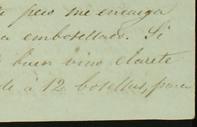 pero me encarga
embotellado. Si
buen vino clarete
de á 12 botellas, para